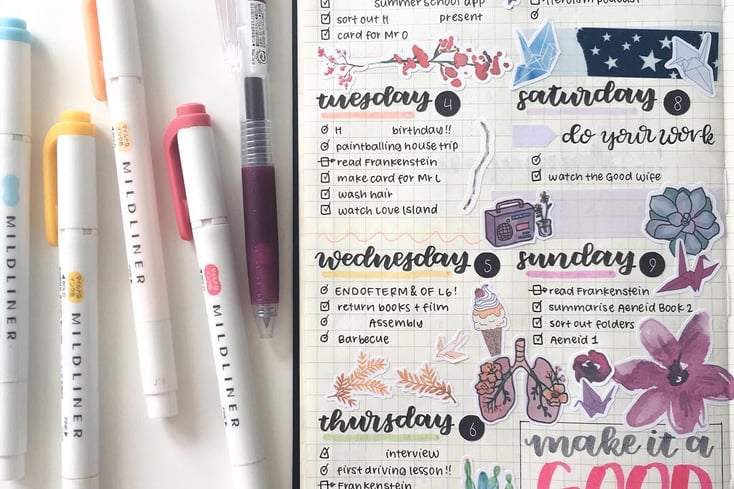 MILDLINER
MILDLINER
MILDLINER
MILDLINER
summer school app
sort out H present
card for Mr O
tuesday 4
H birthday!!
paintballing house trip
read Frankenstein
make card for Mr L
wash hair
watch Love Island
wednesday 5
END OF TERM & OF L6!
return books + film
Assembly
Barbecue
thursday 6
interview
first driving lesson!!
Frankenstein
podcast
saturday 8
do your work
watch the Good Wife
sunday 9
read Frankenstein
summarise Aeneid Book 2
sort out folders
Aeneid 1
make it a
GOOD